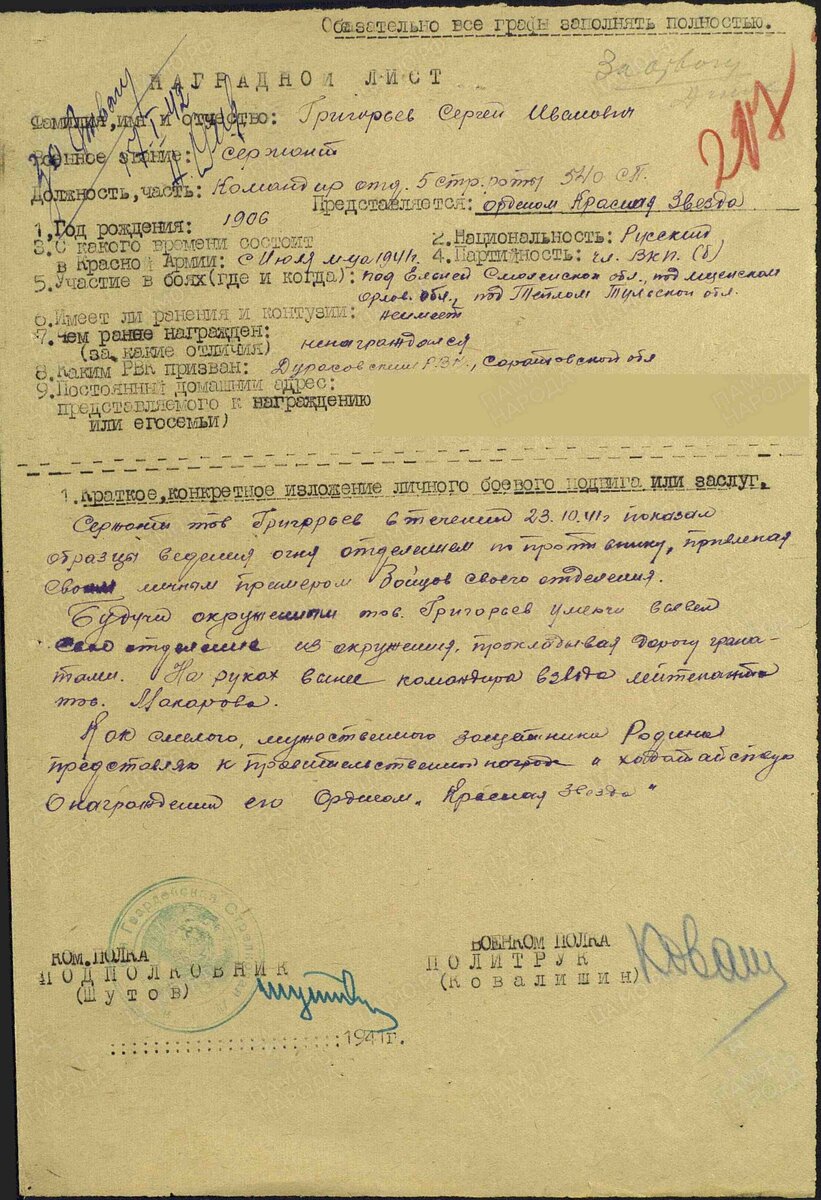 Обязательно все графы заполнять полностью.
За отвагу
НАГРАДНОЙ ЛИСТ
За отвагу
207
Фамилия, имя и отчество: Григорьев Сергей Иванович
Военное звание: Сержант
Должность, часть: Командир отд. 5 стр. роты 540 СП.
Представляется: орденом Красная Звезда
1. Год рождения: 1906
2. Национальность: Русский
3. С какого времени состоит
в Красной Армии: с Июля м-ца 1941г.
4. Партийность: чл. ВКП. (б)
5. Участие в боях (где и когда): под Ельней Смоленской обл., под мценском
Орлов. обл., под Теплом Тульской обл.
6. Имеет ли ранения и контузии: неимеет
7. Чем ранее награжден:
(за какие отличия) ненаграждался
8. Каким РВК призван: Дурасовским Р.В.К., Саратовской обл
9. Постоянный домашний адрес:
представляемого к награждению
или егосемьи)
1. Краткое, конкретное изложение личного боевого подвига или заслуг.
Сержант тов Григорьев в течении 23.10.41г показал
образцы ведения огня отделением по противнику,
своим личным примером Бойцов своего отделения.
Будучи окруженным тов. Григорьев умело вывел
свое отделение из окружения, прокладывая дорогу грана-
тами. На руках вынес командира взвода лейтенанта
тов. Макарова.
Как смелого, мужественного защитника Родины
представляю к правительственной и ходатайствую
О награждении его Орденом „Красная Звезда"
КОМ. ПОЛКА
ПОДПОЛКОВНИК
(Шутов)
Шутов
ВОЕНКОМ ПОЛКА
ПОЛИТРУК
(Ковалишин)
Ковалиш
1941г.